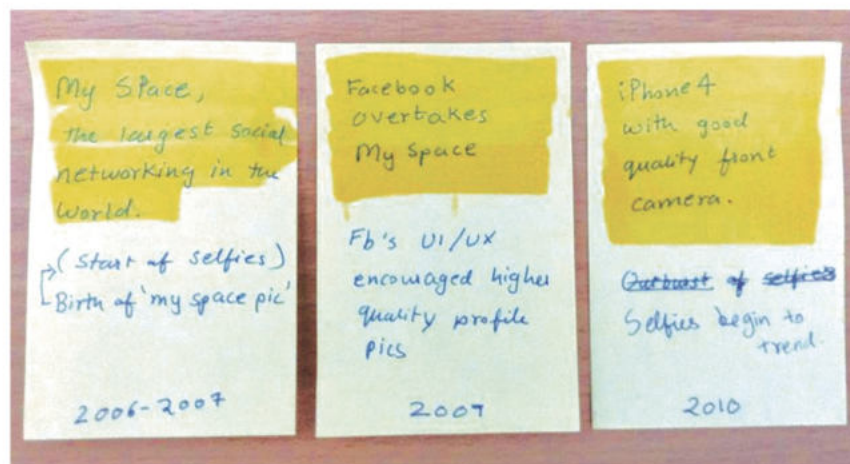 My Space,
the largest social
networking in the
world.
(Start of selfies)
Birth of 'my space pic'
2006-2007
Facebook
overtakes
My space
Fb's UI/UX
encouraged higher
quality profile
pics
2009
iPhone 4
with good
quality front
camera.
Outburst of selfies
Selfies begin to
trend.
2010